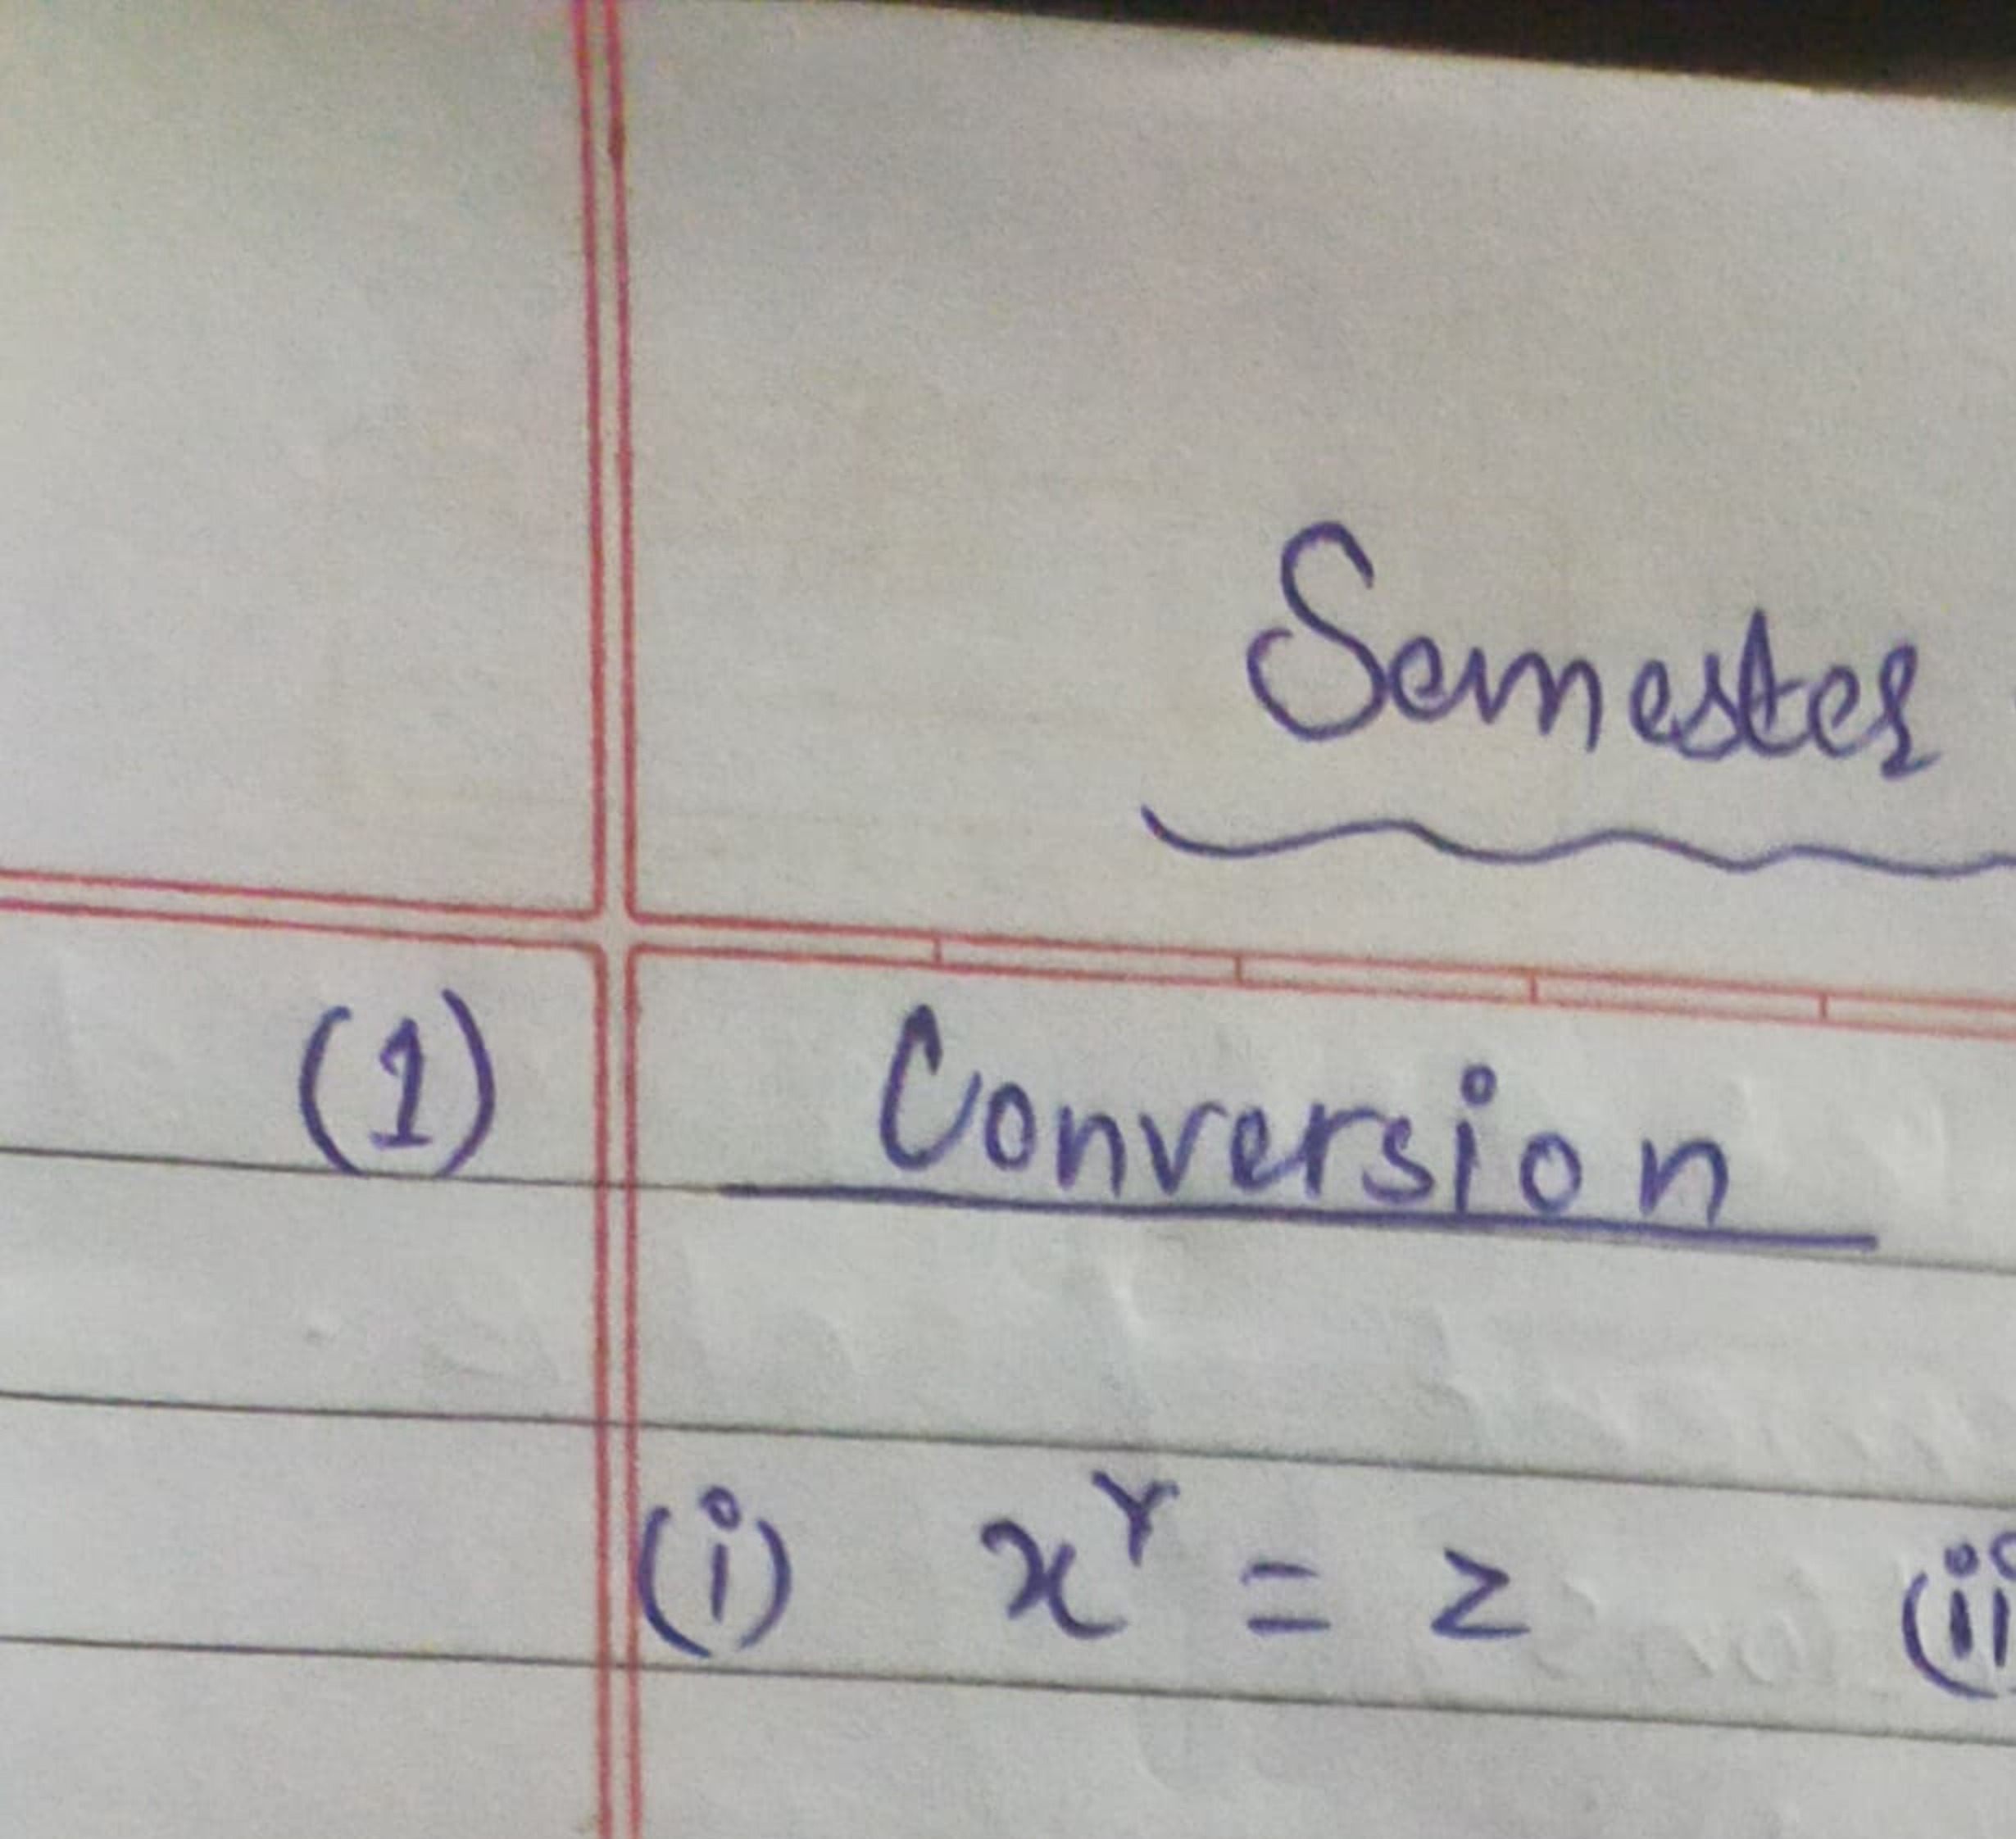 Semester
(1) Conversion
(i) x^Y = z (ii